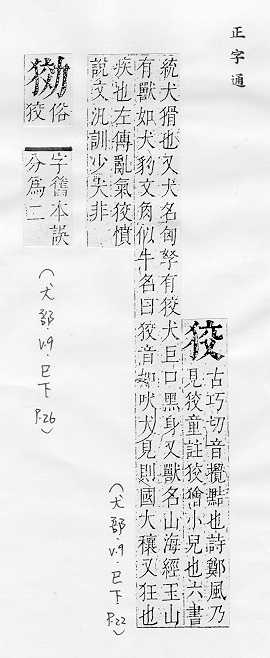 正字通
狡
古巧切音攪黠也詩鄭風乃
見狡童註狡獪小兒也六書
統犬猾也又犬名匈孥有狡犬巨口黑身又獸名山海經玉山
有獸如犬豹文角似牛名曰狡音如吠犬見則國大穰又狂也
疾也左傳亂氣狡憤
說文汎訓少犬非
(犬部·v.9·巳下·P.22)
俗字舊本誤
狡分爲二
(犬部·v.9·巳下·P.26)